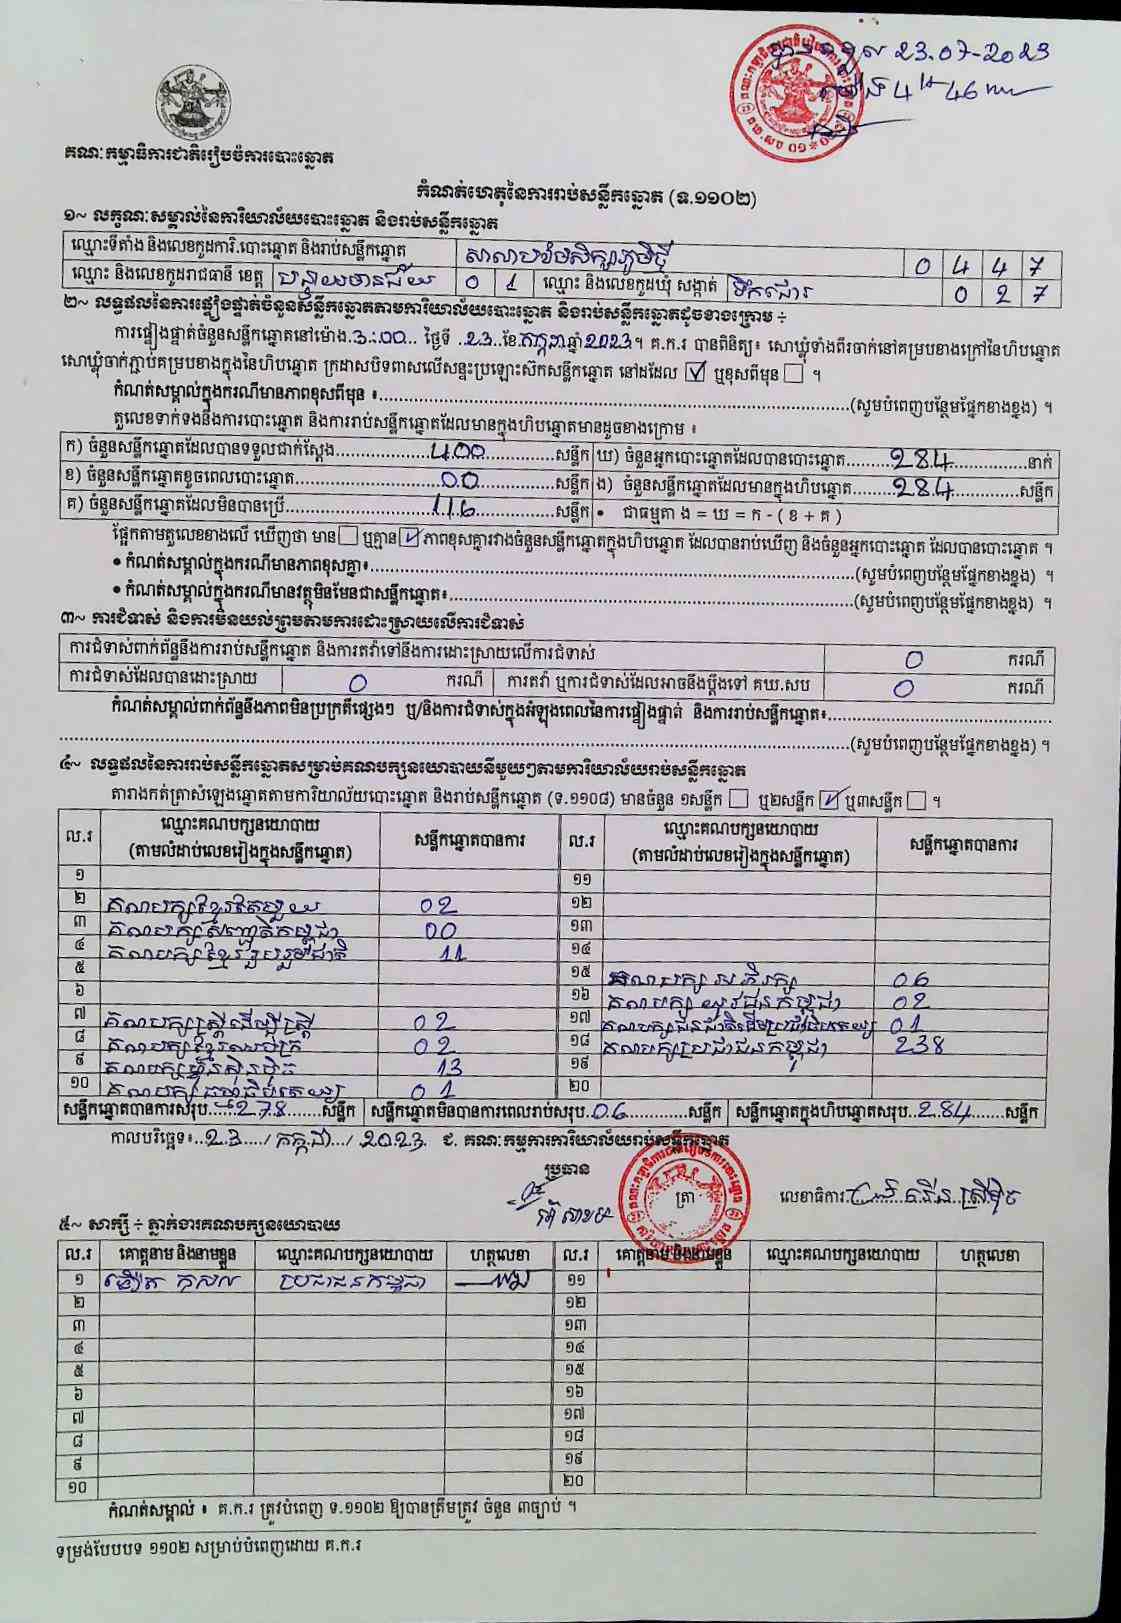 23.07-2023
ម៉ោង 4 46
គណៈកម្មាធិការជាតិរៀបចំការបោះឆ្នោត
កំណត់ហេតុនៃការរាប់សន្លឹកឆ្នោត (ទ.១១០២)
១~ លក្ខណៈសម្គាល់នៃការិយាល័យបោះឆ្នោត និងរាប់សន្លឹកឆ្នោត
ឈ្មោះទីតាំង និងលេខកូដការិ.បោះឆ្នោត និងរាប់សន្លឹកឆ្នោត សាលាបឋមសិក្សាភូមិថ្មី 0 4 4 7
ឈ្មោះ និងលេខកូដរាជធានី ខេត្ត បន្ទាយមានជ័យ 0 1 ឈ្មោះ និងលេខកូដឃុំ សង្កាត់ ទឹកជោរ 0 2 7
២~ លទ្ធផលនៃការផ្ទៀងផ្ទាត់ចំនួនសន្លឹកឆ្នោតតាមការិយាល័យបោះឆ្នោត និងរាប់សន្លឹកឆ្នោតដូចខាងក្រោម ÷
ការផ្ទៀងផ្ទាត់ចំនួនសន្លឹកឆ្នោតនៅម៉ោង.3:00... ថ្ងៃទី ..23..ខែ.កក្កដា.ឆ្នាំ2023.។ គ.ក.រ បានពិនិត្យ៖ សោឃ្លុំទាំងពីរចាក់នៅគម្របខាងក្រៅនៃហិបឆ្នោត
សោឃ្លុំចាក់ភ្ជាប់គម្របខាងក្នុងនៃហិបឆ្នោត ក្រដាសបិទពាសលើសន្ទះប្រឡោះស៊កសន្លឹកឆ្នោត នៅដដែល ☑ ឬខុសពីមុន ☐ ។
កំណត់សម្គាល់ក្នុងករណីមានភាពខុសពីមុន ៖...(សូមបំពេញបន្ថែមផ្នែកខាងខ្នង) ។
តួលេខទាក់ទងនឹងការបោះឆ្នោត និងការរាប់សន្លឹកឆ្នោតដែលមានក្នុងហិបឆ្នោតមានដូចខាងក្រោម ៖
ក) ចំនួនសន្លឹកឆ្នោតដែលបានទទួលជាក់ស្តែង...400...សន្លឹក ឃ) ចំនួនអ្នកបោះឆ្នោតដែលបានបោះឆ្នោត...284...នាក់
ខ) ចំនួនសន្លឹកឆ្នោតខូចពេលបោះឆ្នោត...00...សន្លឹក ង) ចំនួនសន្លឹកឆ្នោតដែលមានក្នុងហិបឆ្នោត...284...សន្លឹក
គ) ចំនួនសន្លឹកឆ្នោតដែលមិនបានប្រើ...116...សន្លឹក • ជាធម្មតា ង = ឃ = ក - ( ខ + គ )
ផ្អែកតាមតួលេខខាងលើ ឃើញថា មាន ☐ ឬគ្មាន ☑ ភាពខុសគ្នារវាងចំនួនសន្លឹកឆ្នោតក្នុងហិបឆ្នោត ដែលបានរាប់ឃើញ និងចំនួនអ្នកបោះឆ្នោត ដែលបានបោះឆ្នោត ។
• កំណត់សម្គាល់ក្នុងករណីមានភាពខុសគ្នា៖...(សូមបំពេញបន្ថែមផ្នែកខាងខ្នង) ។
• កំណត់សម្គាល់ក្នុងករណីមានវត្ថុមិនមែនជាសន្លឹកឆ្នោត៖...(សូមបំពេញបន្ថែមផ្នែកខាងខ្នង) ។
៣~ ការជំទាស់ និងការមិនយល់ព្រមតាមការដោះស្រាយលើការជំទាស់
ការជំទាស់ពាក់ព័ន្ធនឹងការរាប់សន្លឹកឆ្នោត និងការតវ៉ាទៅនឹងការដោះស្រាយលើការជំទាស់ 0 ករណី
ការជំទាស់ដែលបានដោះស្រាយ 0 ករណី ការតវ៉ា ឬការជំទាស់ដែលអាចនឹងប្តឹងទៅ គឃ.សប 0 ករណី
កំណត់សម្គាល់ពាក់ព័ន្ធនឹងភាពមិនប្រក្រតីផ្សេងៗ ឬ/និងការជំទាស់ក្នុងអំឡុងពេលនៃការផ្ទៀងផ្ទាត់ និងការរាប់សន្លឹកឆ្នោត៖...
...(សូមបំពេញបន្ថែមផ្នែកខាងខ្នង) ។
៤~ លទ្ធផលនៃការរាប់សន្លឹកឆ្នោតសម្រាប់គណបក្សនយោបាយនីមួយៗតាមការិយាល័យរាប់សន្លឹកឆ្នោត
តារាងកត់ត្រាសំឡេងឆ្នោតតាមការិយាល័យបោះឆ្នោត និងរាប់សន្លឹកឆ្នោត (ទ.១១០៨) មានចំនួន ១សន្លឹក ☐ ឬ២សន្លឹក ☑ ឬ៣សន្លឹក ☐ ។
ល.រ ឈ្មោះគណបក្សនយោបាយ (តាមលំដាប់លេខរៀងក្នុងសន្លឹកឆ្នោត) សន្លឹកឆ្នោតបានការ ល.រ ឈ្មោះគណបក្សនយោបាយ (តាមលំដាប់លេខរៀងក្នុងសន្លឹកឆ្នោត) សន្លឹកឆ្នោតបានការ
១ ១១
២ គណបក្សខ្មែរតែមួយ 02 ១២
៣ គណបក្សសញ្ជាតិកម្ពុជា 00 ១៣
៤ គណបក្សខ្មែររួបរួមជាតិ 11 ១៤
៥ ១៥ គណបក្ស អភិរក្ស 06
៦ ១៦ គណបក្ស យុវជនកម្ពុជា 02
៧ គណបក្សស្ត្រីដើម្បីស្ត្រី 02 ១៧ គណបក្សជនជាតិដើមប្រជាធិបតេយ្យ 01
៨ គណបក្សខ្មែរឈប់ក្រ 02 ១៨ គណបក្សប្រជាជនកម្ពុជា 238
៩ គណបក្សហ្វ៊ុនស៊ិនប៉ិច 13 ១៩
១០ គណបក្ស ធម្មាធិបតេយ្យ 01 ២០
សន្លឹកឆ្នោតបានការសរុប...278...សន្លឹក សន្លឹកឆ្នោតមិនបានការពេលរាប់សរុប..06...សន្លឹក សន្លឹកឆ្នោតក្នុងហិបឆ្នោតសរុប..284...សន្លឹក
កាលបរិច្ឆេទ៖..23.../កក្កដា.../2023. ជ. គណៈកម្មការការិយាល័យរាប់សន្លឹកឆ្នោត
ប្រធាន
ត្រា
លេខាធិការ
៥~ សាក្សី ÷ ភ្នាក់ងារគណបក្សនយោបាយ
ល.រ គោត្តនាម និងនាមខ្លួន ឈ្មោះគណបក្សនយោបាយ ហត្ថលេខា ល.រ គោត្តនាម និងនាមខ្លួន ឈ្មោះគណបក្សនយោបាយ ហត្ថលេខា
១ កុសល ប្រជាជនកម្ពុជា ១១
២ ១២
៣ ១៣
៤ ១៤
៥ ១៥
៦ ១៦
៧ ១៧
៨ ១៨
៩ ១៩
១០ ២០
កំណត់សម្គាល់ ៖ គ.ក.រ ត្រូវបំពេញ ទ.១១០២ ឱ្យបានត្រឹមត្រូវ ចំនួន ៣ច្បាប់ ។
ទម្រង់បែបបទ ១១០២ សម្រាប់បំពេញដោយ គ.ក.រ